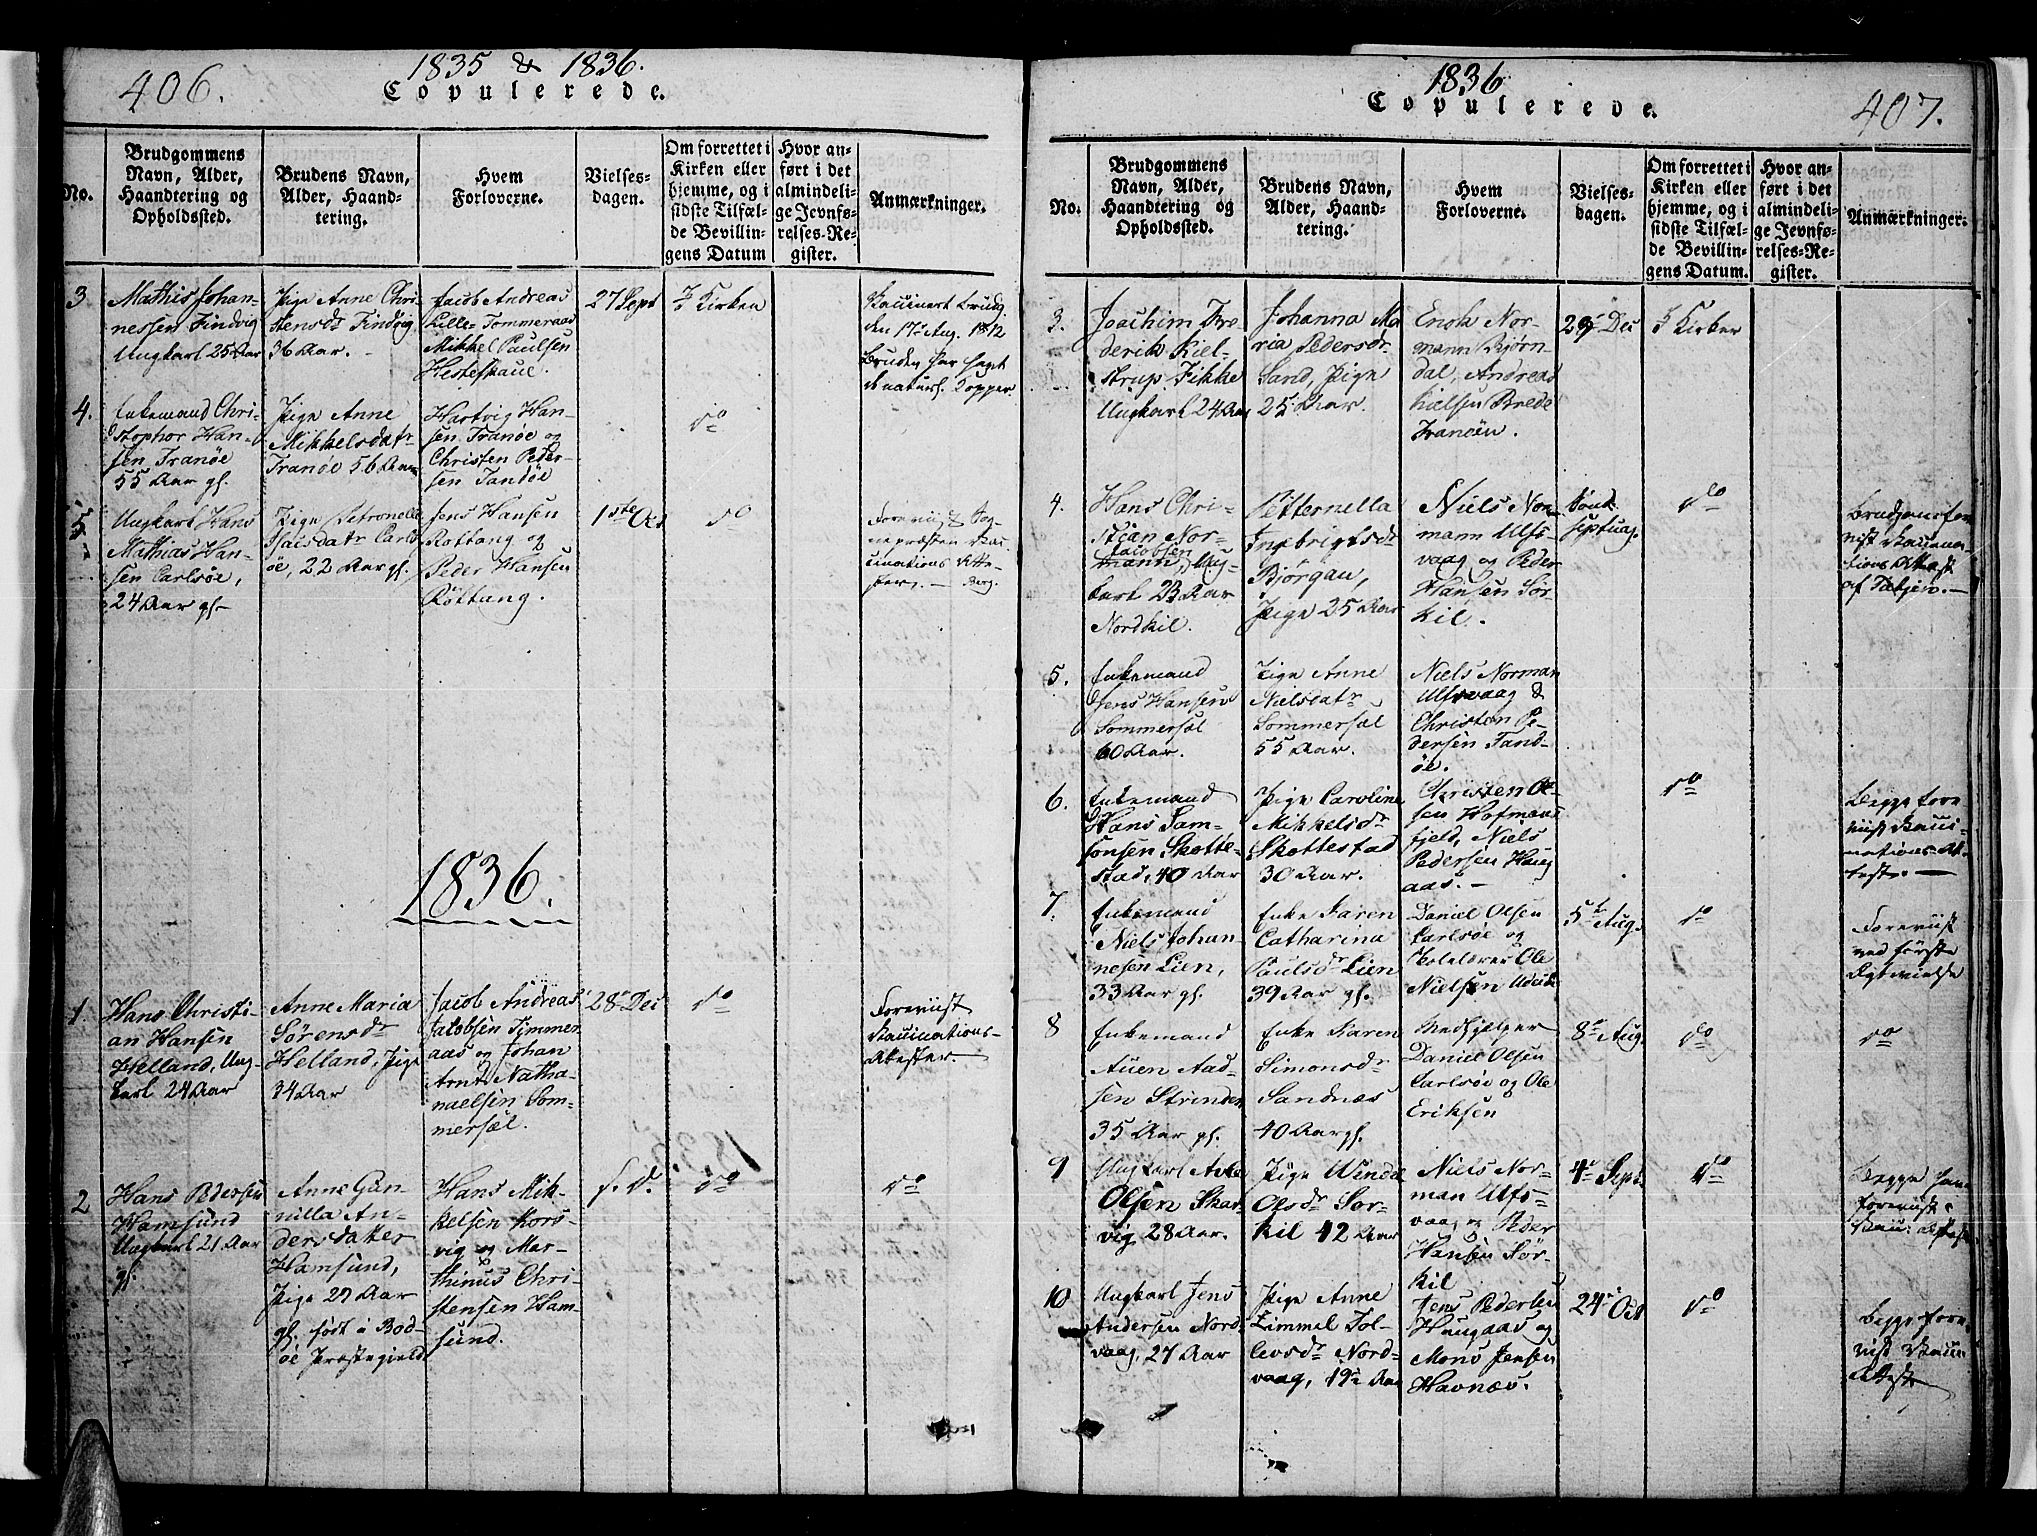 406.
1835 & 1836.
Copulerede.
No.
Brudgommens Navn, Alder, Haandtering og Opholdssted.
Brudens Navn, Alder, Haandtering.
Hvem Forloverne.
Vielsesdagen.
Om forrettet i Kirken eller hjemme, og i sidste Tilfælde Bevillingens Datum
Hvor anført i det almindelige Jevnførelses-Register.
Anmærkninger.
3
Mathis Johan-
nessen Findvig
Ungkarl 25 Aar
Pige Anne Chri-
stensdr Findvig
36 Aar.
Jacob Andreas
Lille-Tommeraas
Mikkel Paulsen
Hesteskaue.
27 Sept
I Kirken
Vaccinert Brudg.
den 17 Aug. 1812
Bruden har havt
de naturl. Kopper.
4.
Enkemand Chri-
stopher Han-
sen Tranøe
55 Aar gl.
Pige Anne
Mikkelsdatr
Tranøe 56 Aar
Hartvig Han-
sen Tranøe og
Christen Peder-
sen Tandøe
do
5
Ungkarl Hans
Mathias Han-
sen Carlsøe,
24 Aar gl.
Pige Petronelle
Isaksdatr Carls-
øe, 22 Aar gl.
Jens Hansen
Rottang og
Peder Hansen
Røttang.
1ste Oct
do
1836.
1.
Hans Christi-
an Hansen
Helland, Ung-
karl 24 Aar
Anne Maria
Sørensdr
Helland, Pige
34 Aar
Jacob Andreas
Jacobsen Timmer-
aas og Johan
Arnt Natha-
naelsen Som-
mersæl.
28 Dec
do
Foreviist
Vaccinations-
Attester.
2
Hans Pedersen
Hamsund
Ungkarl 21 Aar
gl.
Anne Gun-
nilla An-
dersdatter
Hamsund,
Pige 27 Aar
gl. født i Bod-
øe Præstegield
Hans Mik-
kelsen Kors-
vig og Mar-
thinus Chri-
stensen Ham-
sund.
s. d.
do
do
1836
Copulerede.
407.
No.
Brudgommens Navn, Alder, Haandtering og Opholdssted.
Brudens Navn, Alder, Haandtering.
Hvem Forloverne.
Vielsesdagen.
Om forrettet i Kirken eller hjemme, og i sidste Tilfælde Bevillingens Datum.
Hvor anført i det almindelige Jevnførelses-Register.
Anmærkninger.
3.
Joachim Fre-
derik Kiel-
strup Fikke
Ungkarl 24 Aar
Johanna Ma-
ria Pedersdr
Sand, Pige
25 Aar.
Enok Nor-
mann Bjørn-
dal, Andreas
Tranøen.
29 Dec
I Kirken
4.
Hans Chri-
stian Nor-
Jacobsen
mann, Ung-
karl 23 Aar
Nordkil.
Petternella
Ingebrigtsdr
Bjørgan,
Pige 25 Aar
Niels Nor-
mann Ulfs-
vaag og Peder
Hansen Sør-
kil.
Septuag.
do
5.
Enkemand
Jens Hansen
Sommersæl
60 Aar.
Pige Anne
Nielsdatr
Sommersæl
55 Aar.
Niels Norman
Ulfsvaag &
Christen Pe-
dersen Tand-
øe.
6.
Enkemand
Hans Sam-
sonsen Skotte-
stad, 40 Aar
Pige Caroline
Mikkelsdr
Skottestad
30 Aar.
Christen Ol-
sen Hofmans-
fjeld, Niels
Pedersen Haug-
aas.
do
Begge fore-
viist Vacci-
nations-At-
test.
7.
Enkemand
Niels Johan-
nesen Lien,
33 Aar gl.
Enke Karen
Catharina
Paulsdr Lien
39 Aar gl.
Daniel Olsen
Carlsøe og
Skolelærer Ole
Nielsen
5t Aug.
do
Foreviist
ved første
Ægtevielse
8
Enkemand
Auen Aad-
sen Strinden
35 Aar gl.
Enke Karen
Simonsdr
Sandnæs
40 Aar gl.
Medhjelper
Daniel Olsen
Carlsøe og Ole
Eriksen
8 Aug
do
do
9
Ungkarl
Olsen Skar-
vig 28 Aar.
Pige
Olsdr Sør-
kil 42 Aar
Niels Nor-
man Ulfs-
vaag og Peder
Hansen Sør-
kil
4 Sept.
do
10
Ungkarl Jens
Andersen Nord-
vaag, 27 Aar
Pige Anne
Zimmel Tol-
levsdr Nord-
vaag, 19 Aar
Jens Pedersen
Haugaas og
Mons Jensen
Havnæs.
24 Oct
do
Begge fore-
viist Vaccin
Attest